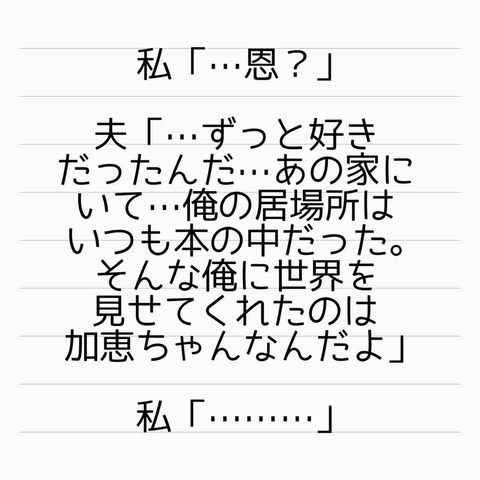 私「…恩？」
夫「…ずっと好き
だったんだ…あの家に
いて…俺の居場所は
いつも本の中だった。
そんな俺に世界を
見せてくれたのは
加恵ちゃんなんだよ」
私「………」